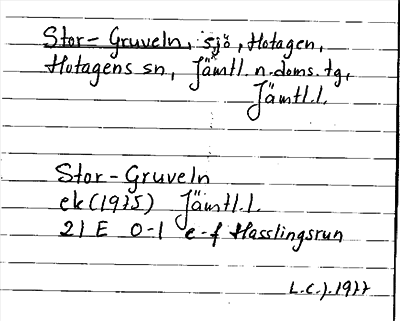 Stor-Gruveln, sjö, Hotagen,
Hotagens sn, Jämtl. n. doms. tg,
Jämtl.l.
Stor-Gruveln
ek (1975) Jämtl.l.
21 E 0-1 e-f Hässlingsrun
L.C.J. 1977